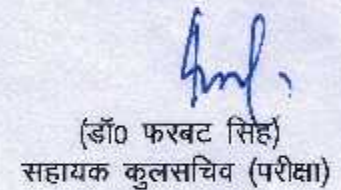 (डॉ0 फरबट सिंह)
सहायक कुलसचिव (परीक्षा)